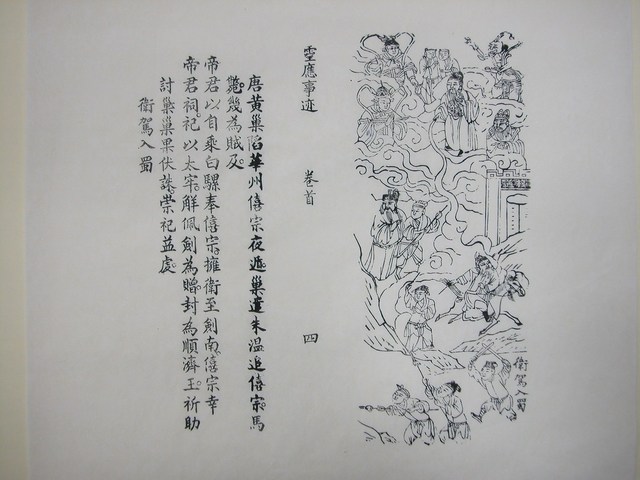 衛駕入蜀
霊應事迹 卷首 四
唐黃巢陷華州僖宗夜遁。巢遣朱溫追僖宗。馬
斃。幾為賊及。
帝君以自乘白騾奉僖宗。擁衛至劍南。僖宗幸
帝君祠。祀以太牢。解佩劍為贈。封為順濟王。祈助
討巢。巢果伏誅。崇祀益虔。
衛駕入蜀